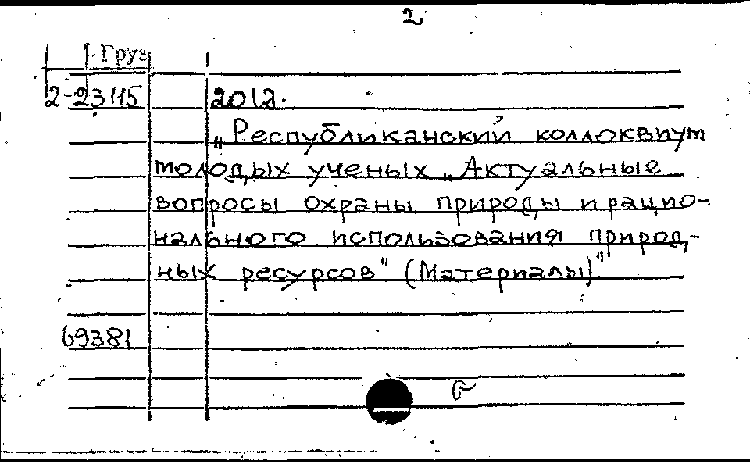 2
Груз
2-23115 2012.
„Республиканский коллоквиум
молодых ученых „Актуальные
вопросы охраны природы и рацио-
нального использования природ-
ных ресурсов" (Материалы)"
69381